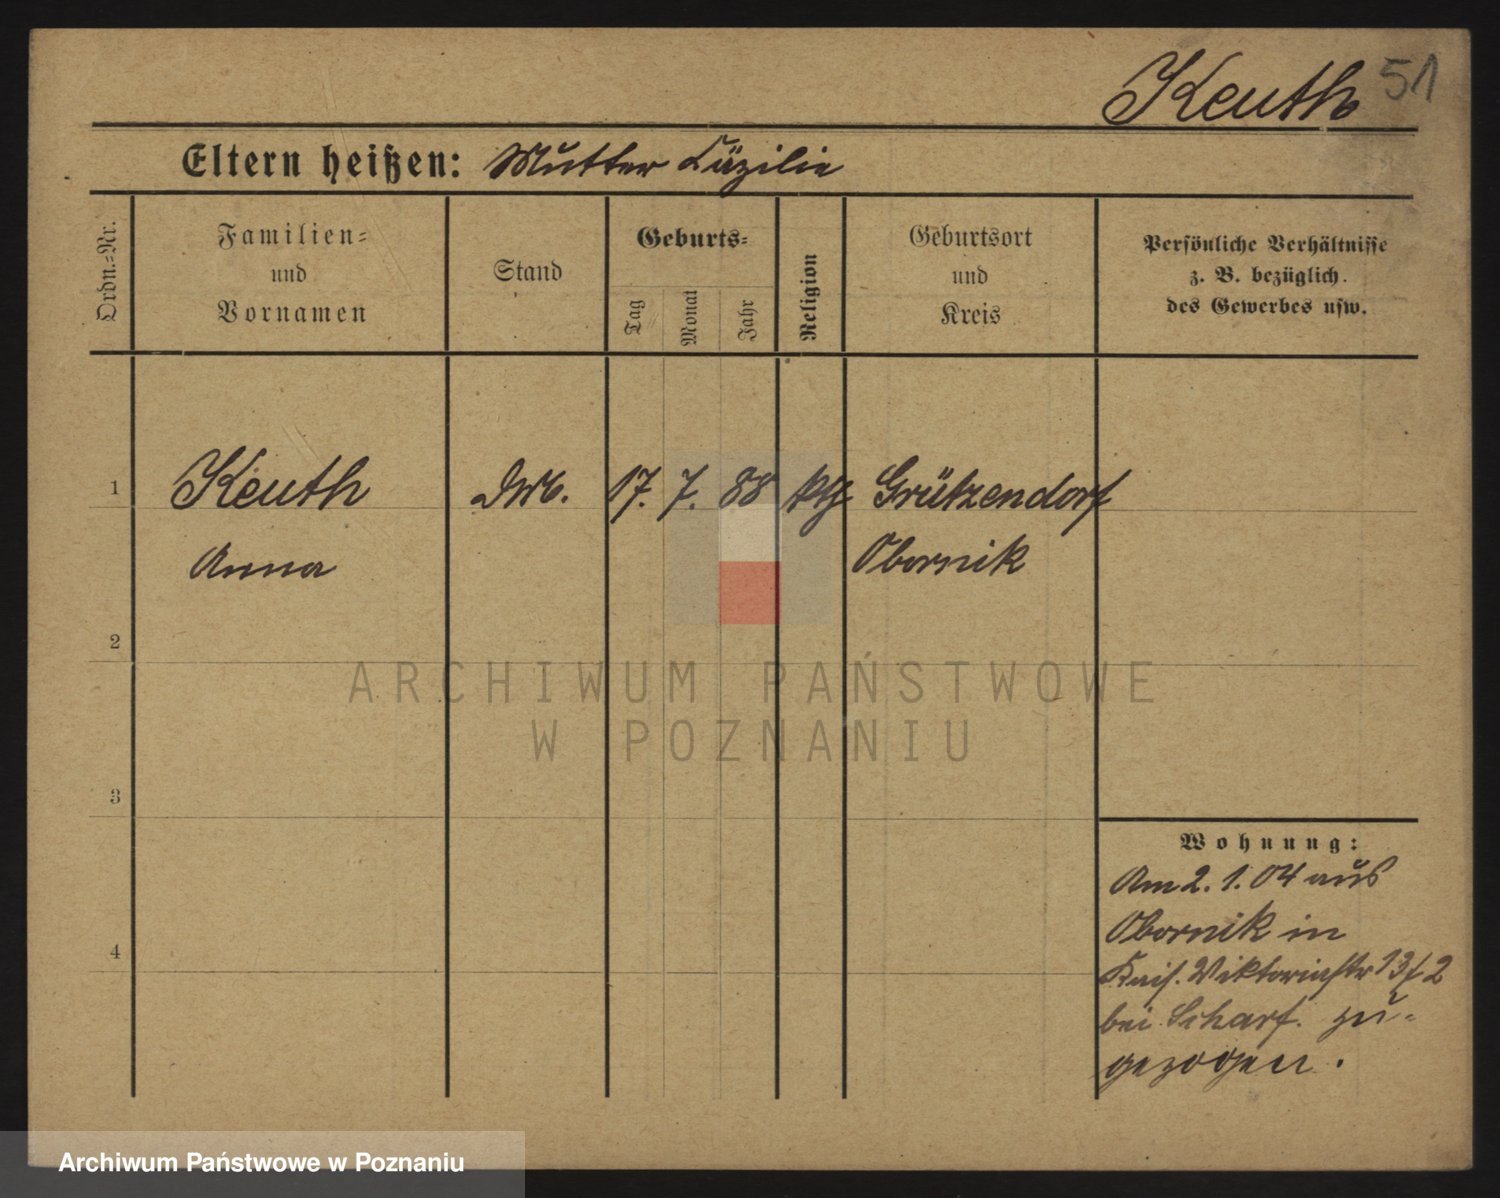 Keuth 51
Eltern heißen: Mutter Cäzilie
Ordn.-Nr.
Familien-
und
Vornamen
Stand
Geburts-
Tag
Monat
Jahr
Religion
Geburtsort
und
Kreis
Persönliche Verhältnisse
z. B. bezüglich
des Gewerbes usw.
1 Keuth 17. 7. 88 kth Grützendorf
Anna Obornik
2
3
4
Wohnung:
Am 2. 1. 04 aus
Obornik in
Kais. Viktoriastr 13
bei Scharf. zu-
gezogen.
ARCHIWUM PAŃSTWOWE
W POZNANIU
Archiwum Państwowe w Poznaniu